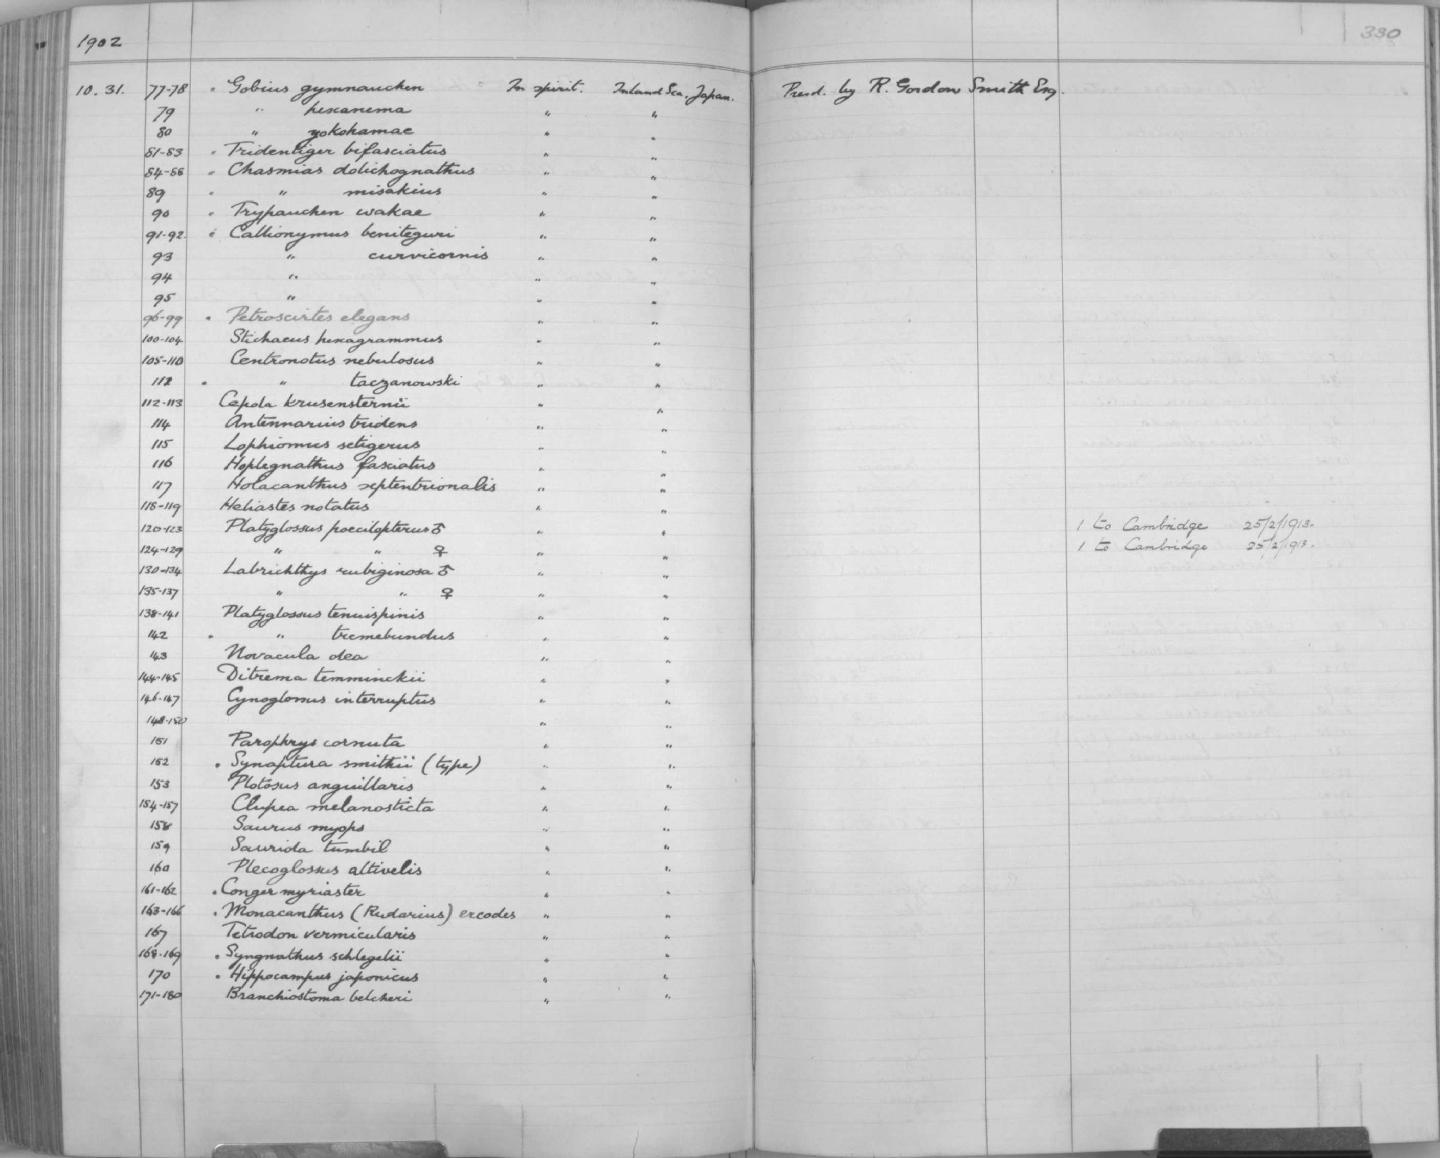 1902
330
10. 31. 77-78 " Gobius gymnauchen In spirit. Inland Sea, Japan. Presd. by R. Gordon Smith Esq.
79 " hexanema " "
80 " yokohamae " "
81-83 " Tridentiger bifasciatus " "
84-88 " Chasmias dolichognathus " "
89 " " misakius " "
90 " Trypauchen wakae " "
91-92 " Callionymus beniteguri " "
93 " curvicornis " "
94 " " "
95 " " "
96-99 " Petroscirtes elegans " "
100-104 Stichaeus hexagrammus " "
105-110 Centronotus nebulosus " "
112 " " taczanowski " "
112-113 Cepola krusensternii " "
114 Antennarius tridens " "
115 Lophiomus setigerus " "
116 Hoplegnathus fasciatus " "
117 Holacanthus septentrionalis " "
118-119 Heliastes notatus " "
120-123 Platyglossus poecilopterus ♂ " " 1 to Cambridge 25/2/1913.
124-129 " " ♀ " " 1 to Cambridge 25/2/1913.
130-134 Labrichthys rubiginosa ♂ " "
135-137 " " ♀ " "
138-141 Platyglossus tenuispinis " "
142 " " tremebundus " "
143 Novacula dea " "
144-145 Ditrema temminckii " "
146-147 Cynoglossus interruptus " "
148-150 " "
151 Parophrys cornuta " "
152 " Synaptura smithii (type) " "
153 Plotosus anguillaris " "
154-157 Clupea melanosticta " "
158 Saurus myops " "
159 Saurida tumbil " "
160 Plecoglossus altivelis " "
161-162 " Conger myriaster " "
163-166 " Monacanthus (Rudarius) ercodes " "
167 Tetrodon vermicularis " "
168-169 " Syngnathus schlegelii " "
170 " Hippocampus japonicus " "
171-180 Branchiostoma belcheri " "